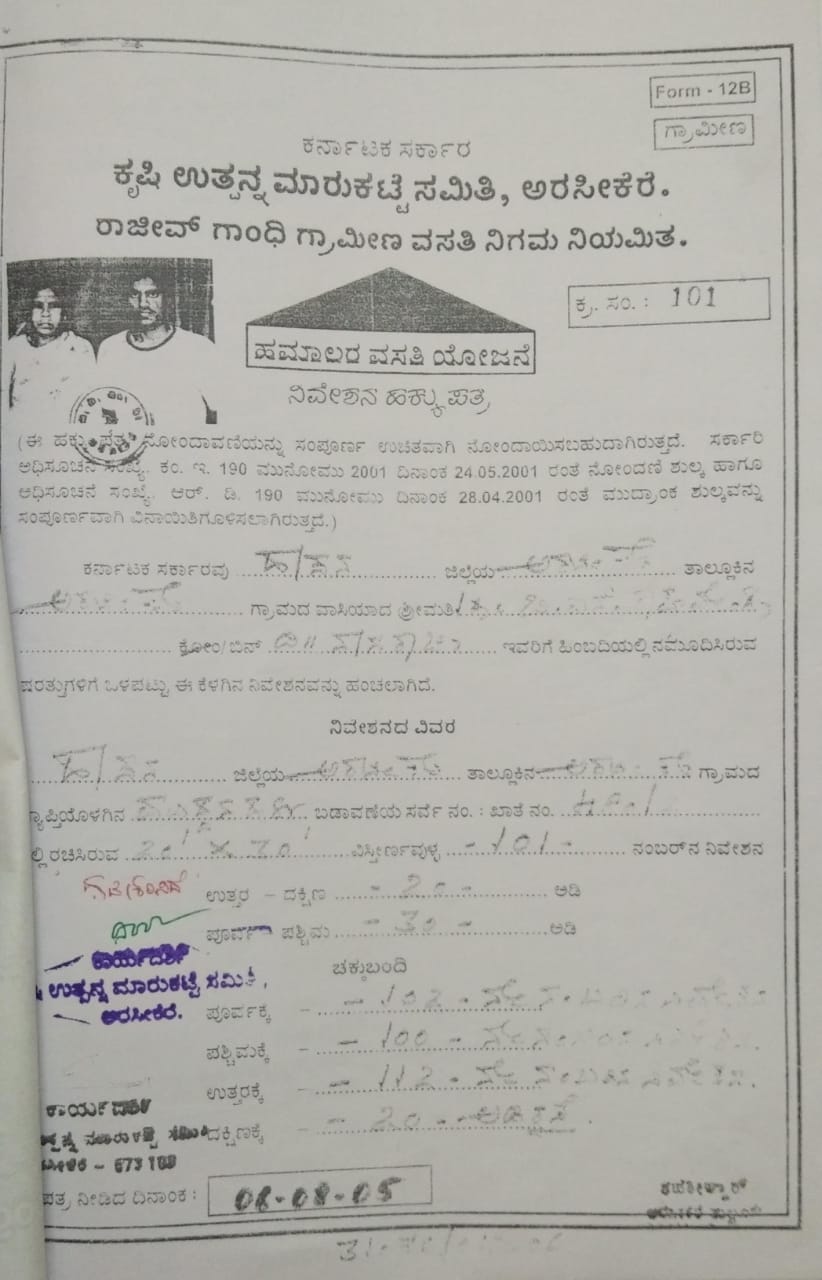 Form - 12B
ಗ್ರಾಮೀಣ
ಕರ್ನಾಟಕ ಸರ್ಕಾರ
ಕೃಷಿ ಉತ್ಪನ್ನ ಮಾರುಕಟ್ಟೆ ಸಮಿತಿ, ಅರಸೀಕೆರೆ.
ರಾಜೀವ್ ಗಾಂಧಿ ಗ್ರಾಮೀಣ ವಸತಿ ನಿಗಮ ನಿಯಮಿತ.
ಕ್ರ. ಸಂ. : 101
ಹಮಾಲರ ವಸತಿ ಯೋಜನೆ
ನಿವೇಶನ ಹಕ್ಕು ಪತ್ರ
(ಈ ಹಕ್ಕು ಪತ್ರ ನೋಂದಾವಣಿಯನ್ನು ಸಂಪೂರ್ಣ ಉಚಿತವಾಗಿ ನೋಂದಾಯಿಸಬಹುದಾಗಿರುತ್ತದೆ. ಸರ್ಕಾರಿ
ಅಧಿಸೂಚನೆ ಸಂಖ್ಯೆ. ಕಂ. ಇ. 190 ಮುನೋಮು 2001 ದಿನಾಂಕ 24.05.2001 ರಂತೆ ನೋಂದಣಿ ಶುಲ್ಕ ಹಾಗೂ
ಅಧಿಸೂಚನೆ ಸಂಖ್ಯೆ. ಆರ್. ಡಿ. 190 ಮುನೋಮು ದಿನಾಂಕ 28.04.2001 ರಂತೆ ಮುದ್ರಾಂಕ ಶುಲ್ಕವನ್ನು
ಸಂಪೂರ್ಣವಾಗಿ ವಿನಾಯಿತಿಗೊಳಿಸಲಾಗಿರುತ್ತದೆ.)
ಕರ್ನಾಟಕ ಸರ್ಕಾರವು ಹಾಸನ ಜಿಲ್ಲೆಯ ತಾಲ್ಲೂಕಿನ
ಗ್ರಾಮದ ವಾಸಿಯಾದ ಶ್ರೀಮತಿ/
ಕೋಂ/ಬಿನ್ ಇವರಿಗೆ ಹಿಂಬದಿಯಲ್ಲಿ ನಮೂದಿಸಿರುವ
ಷರತ್ತುಗಳಿಗೆ ಒಳಪಟ್ಟು ಈ ಕೆಳಗಿನ ನಿವೇಶನವನ್ನು ಹಂಚಲಾಗಿದೆ.
ನಿವೇಶನದ ವಿವರ
ಹಾಸನ ಜಿಲ್ಲೆಯ ತಾಲ್ಲೂಕಿನ ಗ್ರಾಮದ
ವ್ಯಾಪ್ತಿಯೊಳಗಿನ ಬಡಾವಣೆಯ ಸರ್ವೆ ನಂ. : ಖಾತೆ ನಂ.
ಲ್ಲಿ ರಚಿಸಿರುವ 20' x 30' ವಿಸ್ತೀರ್ಣವುಳ್ಳ - 101 - ನಂಬರ್‌ನ ನಿವೇಶನ
ಉತ್ತರ - ದಕ್ಷಿಣ - 20 - ಅಡಿ
ಪೂರ್ವ - ಪಶ್ಚಿಮ - 30 - ಅಡಿ
ಕಾರ್ಯದರ್ಶಿ
ಉತ್ಪನ್ನ ಮಾರುಕಟ್ಟೆ ಸಮಿತಿ,
ಅರಸೀಕೆರೆ.
ಚಕ್ಕುಬಂದಿ
ಪೂರ್ವಕ್ಕೆ - - 102 -
ಪಶ್ಚಿಮಕ್ಕೆ - - 100 -
ಉತ್ತರಕ್ಕೆ - - 112 -
ದಕ್ಷಿಣಕ್ಕೆ - - 20 -
ಕಾರ್ಯದರ್ಶಿ
ಪತ್ರ ನೀಡಿದ ದಿನಾಂಕ : 06-08-05